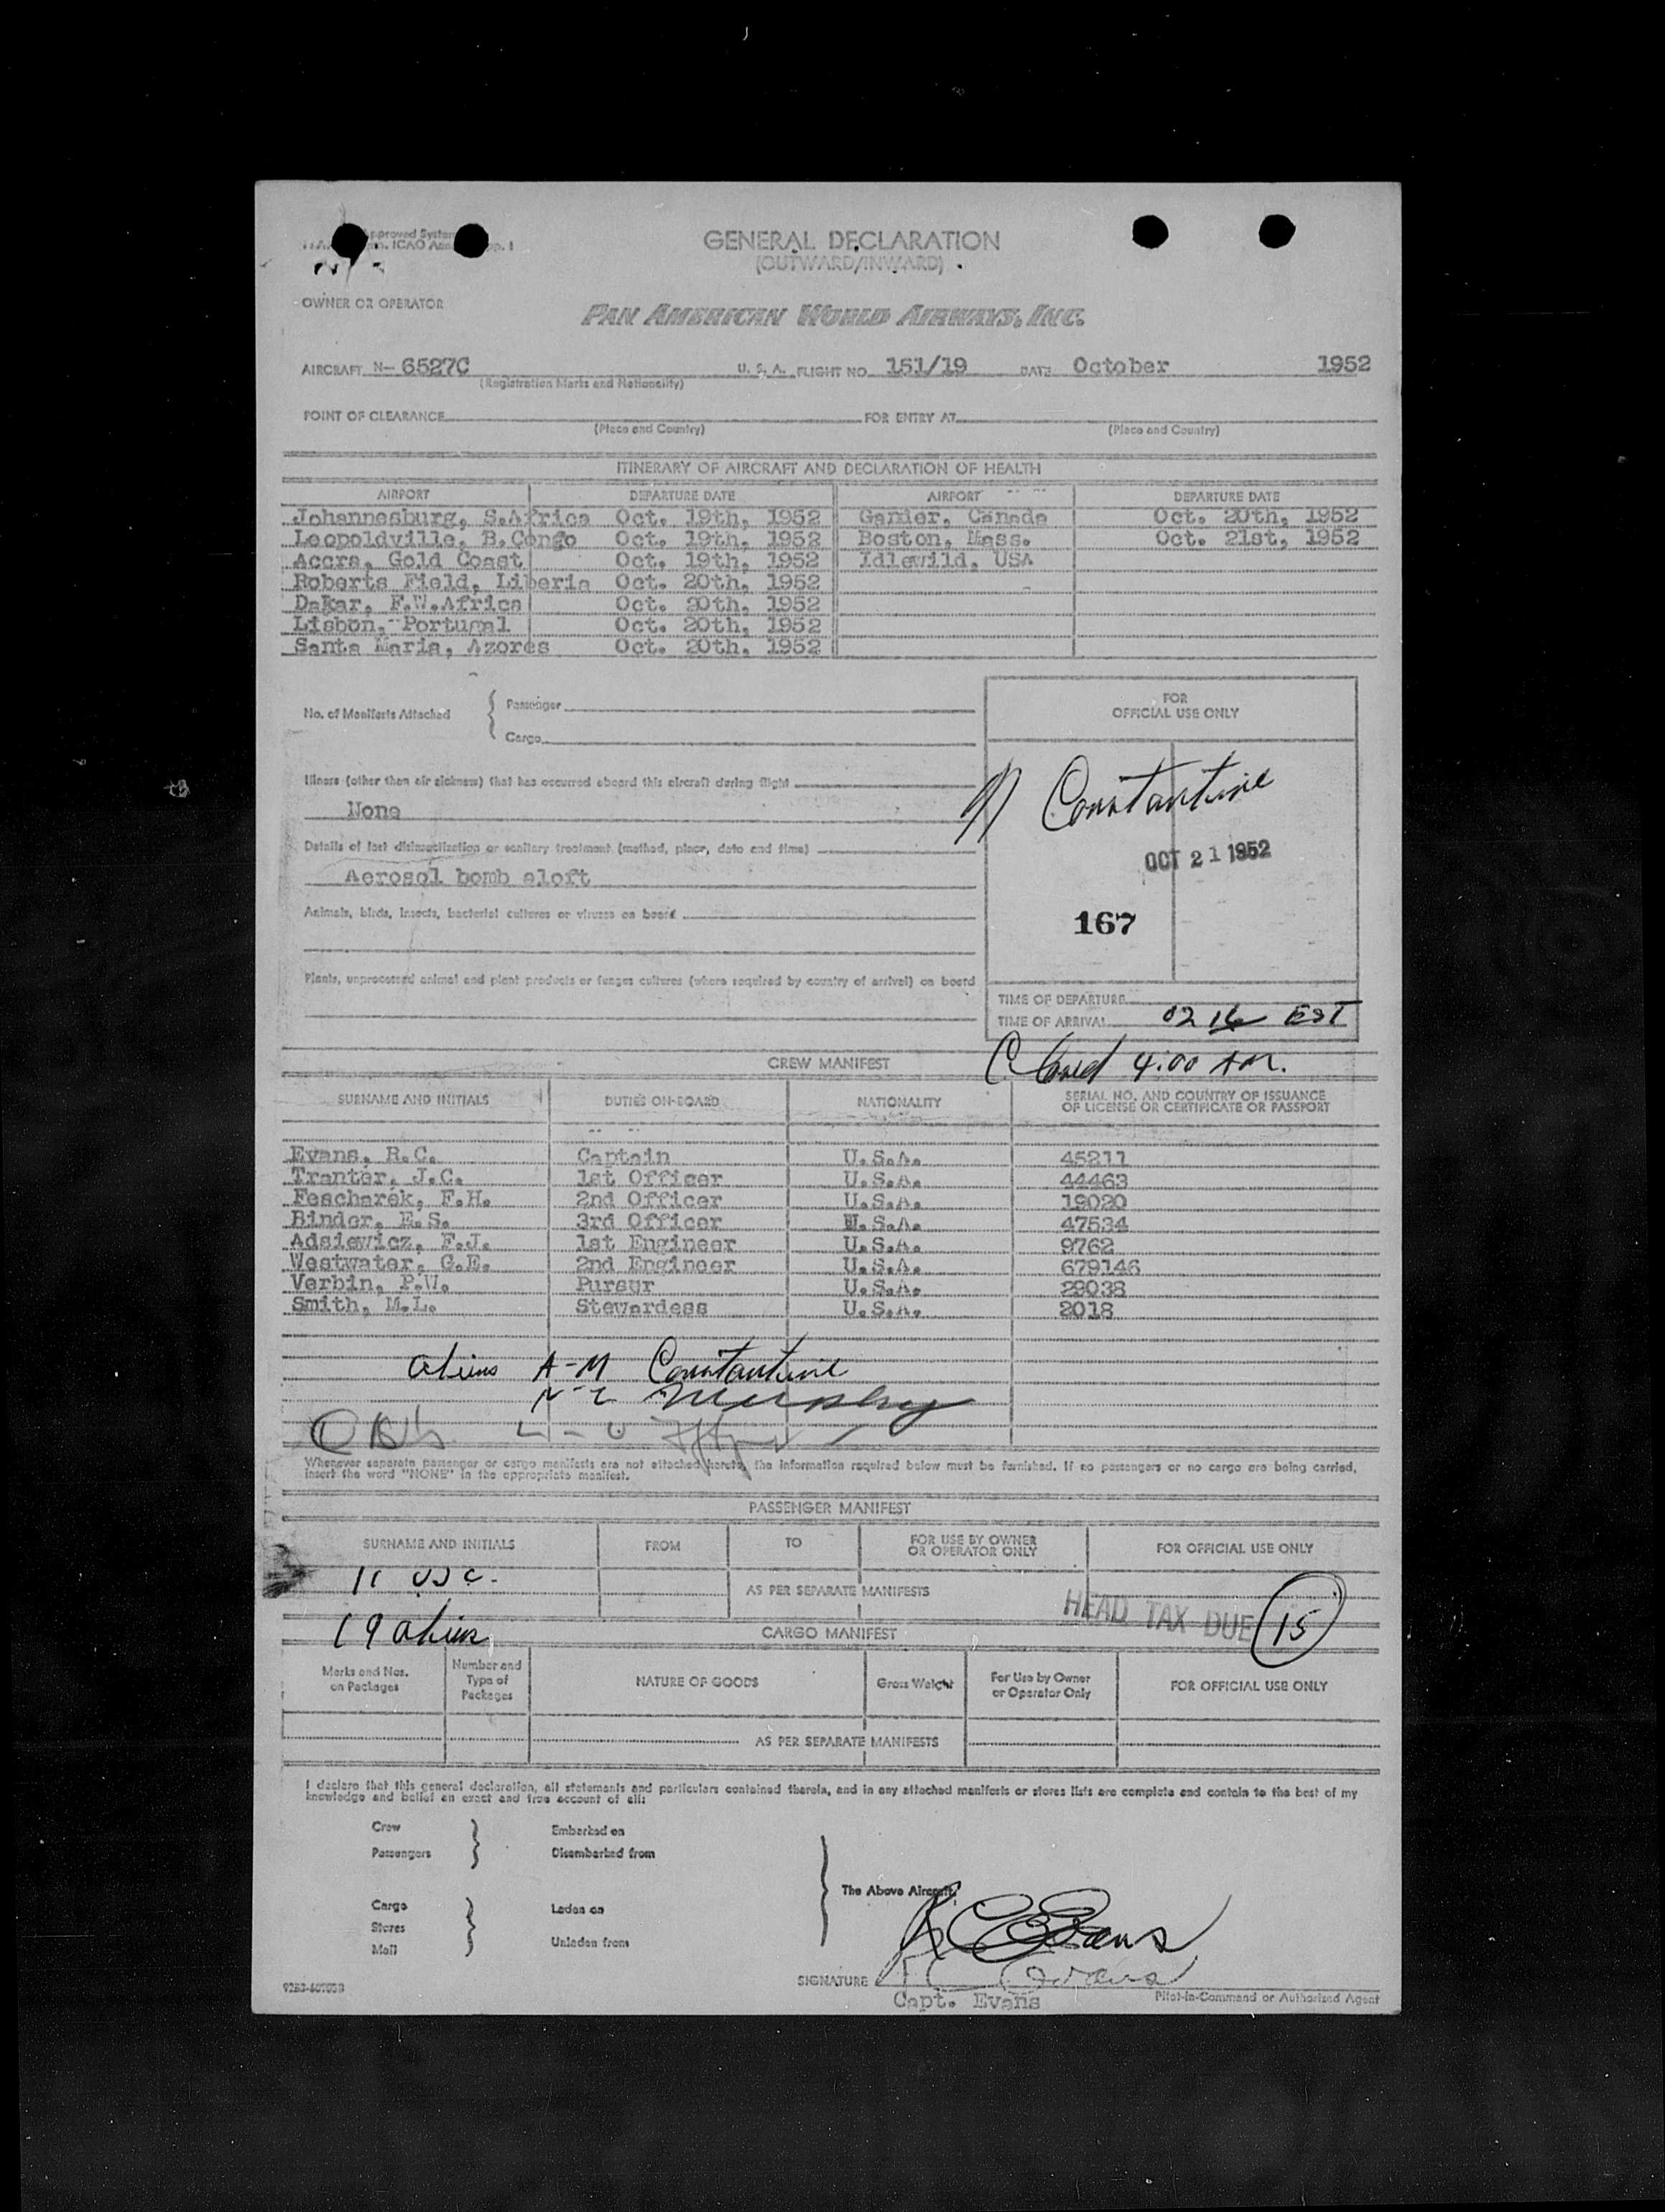 pproved System
ICAO
GENERAL DECLARATION
(OUTWARD/INWARD)
OWNER OR OPERATOR
PAN AMERICAN WORLD AIRWAYS, INC.
AIRCRAFT N- 6527C U. S. A. FLIGHT NO. 151/19 DATE October 1952
(Registration Marks and Nationality)
POINT OF CLEARANCE FOR ENTRY AT
(Place and Country) (Place and Country)
ITINERARY OF AIRCRAFT AND DECLARATION OF HEALTH
AIRPORT DEPARTURE DATE AIRPORT DEPARTURE DATE
Johannesburg, S.Africa Oct. 19th, 1952 Gander, Canada Oct. 20th, 1952
Leopoldville, B.Congo Oct. 19th, 1952 Boston, Mass. Oct. 21st, 1952
Accra, Gold Coast Oct. 19th, 1952 Idlewild, USA
Roberts Field, Liberia Oct. 20th, 1952
Dakar, F.W.Africa Oct. 20th, 1952
Lisbon, Portugal Oct. 20th, 1952
Santa Maria, Azores Oct. 20th, 1952
FOR
OFFICIAL USE ONLY
No. of Manifests Attached { Passenger
Cargo
Illness (other than air sickness) that has occurred aboard this aircraft during flight
None
Constantine
Details of last disinsectization or sanitary treatment (method, place, date and time)
OCT 21 1952
Aerosol bomb aloft
Animals, birds, insects, bacterial cultures or viruses on board
167
Plants, unprocessed animal and plant products or fungus cultures (where required by country of arrival) on board
TIME OF DEPARTURE
TIME OF ARRIVAL 02 16 EST
CREW MANIFEST
Closed 4:00 AM.
SURNAME AND INITIALS DUTIES ON-BOARD NATIONALITY SERIAL NO. AND COUNTRY OF ISSUANCE
OF LICENSE OR CERTIFICATE OR PASSPORT
Evans, R.C. Captain U.S.A. 45211
Tranter, J.C. 1st Officer U.S.A. 44463
Fescharek, F.H. 2nd Officer U.S.A. 19020
Binder, E.S. 3rd Officer U.S.A. 47534
Adsiewicz, F.J. 1st Engineer U.S.A. 9762
Westwater, G.E. 2nd Engineer U.S.A. 679146
Verbin, P.W. Pursur U.S.A. 29038
Smith, M.L. Stewardess U.S.A. 2018
aliens A-M Constantine
N-Z Murphy
Whenever separate passenger or cargo manifests are not attached hereto, the information required below must be furnished. If no passengers or no cargo are being carried,
insert the word "NONE" in the appropriate manifest.
PASSENGER MANIFEST
SURNAME AND INITIALS FROM TO FOR USE BY OWNER
OR OPERATOR ONLY FOR OFFICIAL USE ONLY
11 USC.
AS PER SEPARATE MANIFESTS
HEAD TAX DUE 15
19 aliens
CARGO MANIFEST
Marks and Nos.
on Packages Number and
Type of
Packages NATURE OF GOODS Gross Weight For Use by Owner
or Operator Only FOR OFFICIAL USE ONLY
AS PER SEPARATE MANIFESTS
I declare that this general declaration, all statements and particulars contained therein, and in any attached manifests or stores lists are complete and contain to the best of my
knowledge and belief an exact and true account of all:
Crew Embarked on
Passengers Disembarked from
The Above Aircraft
Cargo Laden on
Stores
Mail Unladen from
R C Evans
SIGNATURE R C Evans
Capt. Evans Pilot-in-Command or Authorized Agent